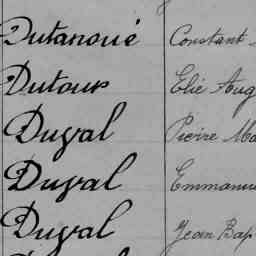 Dutanoué Constant
Dutour Elie Aug
Duval Pierre Ma
Duval Emmanu
Duval Jean Bap